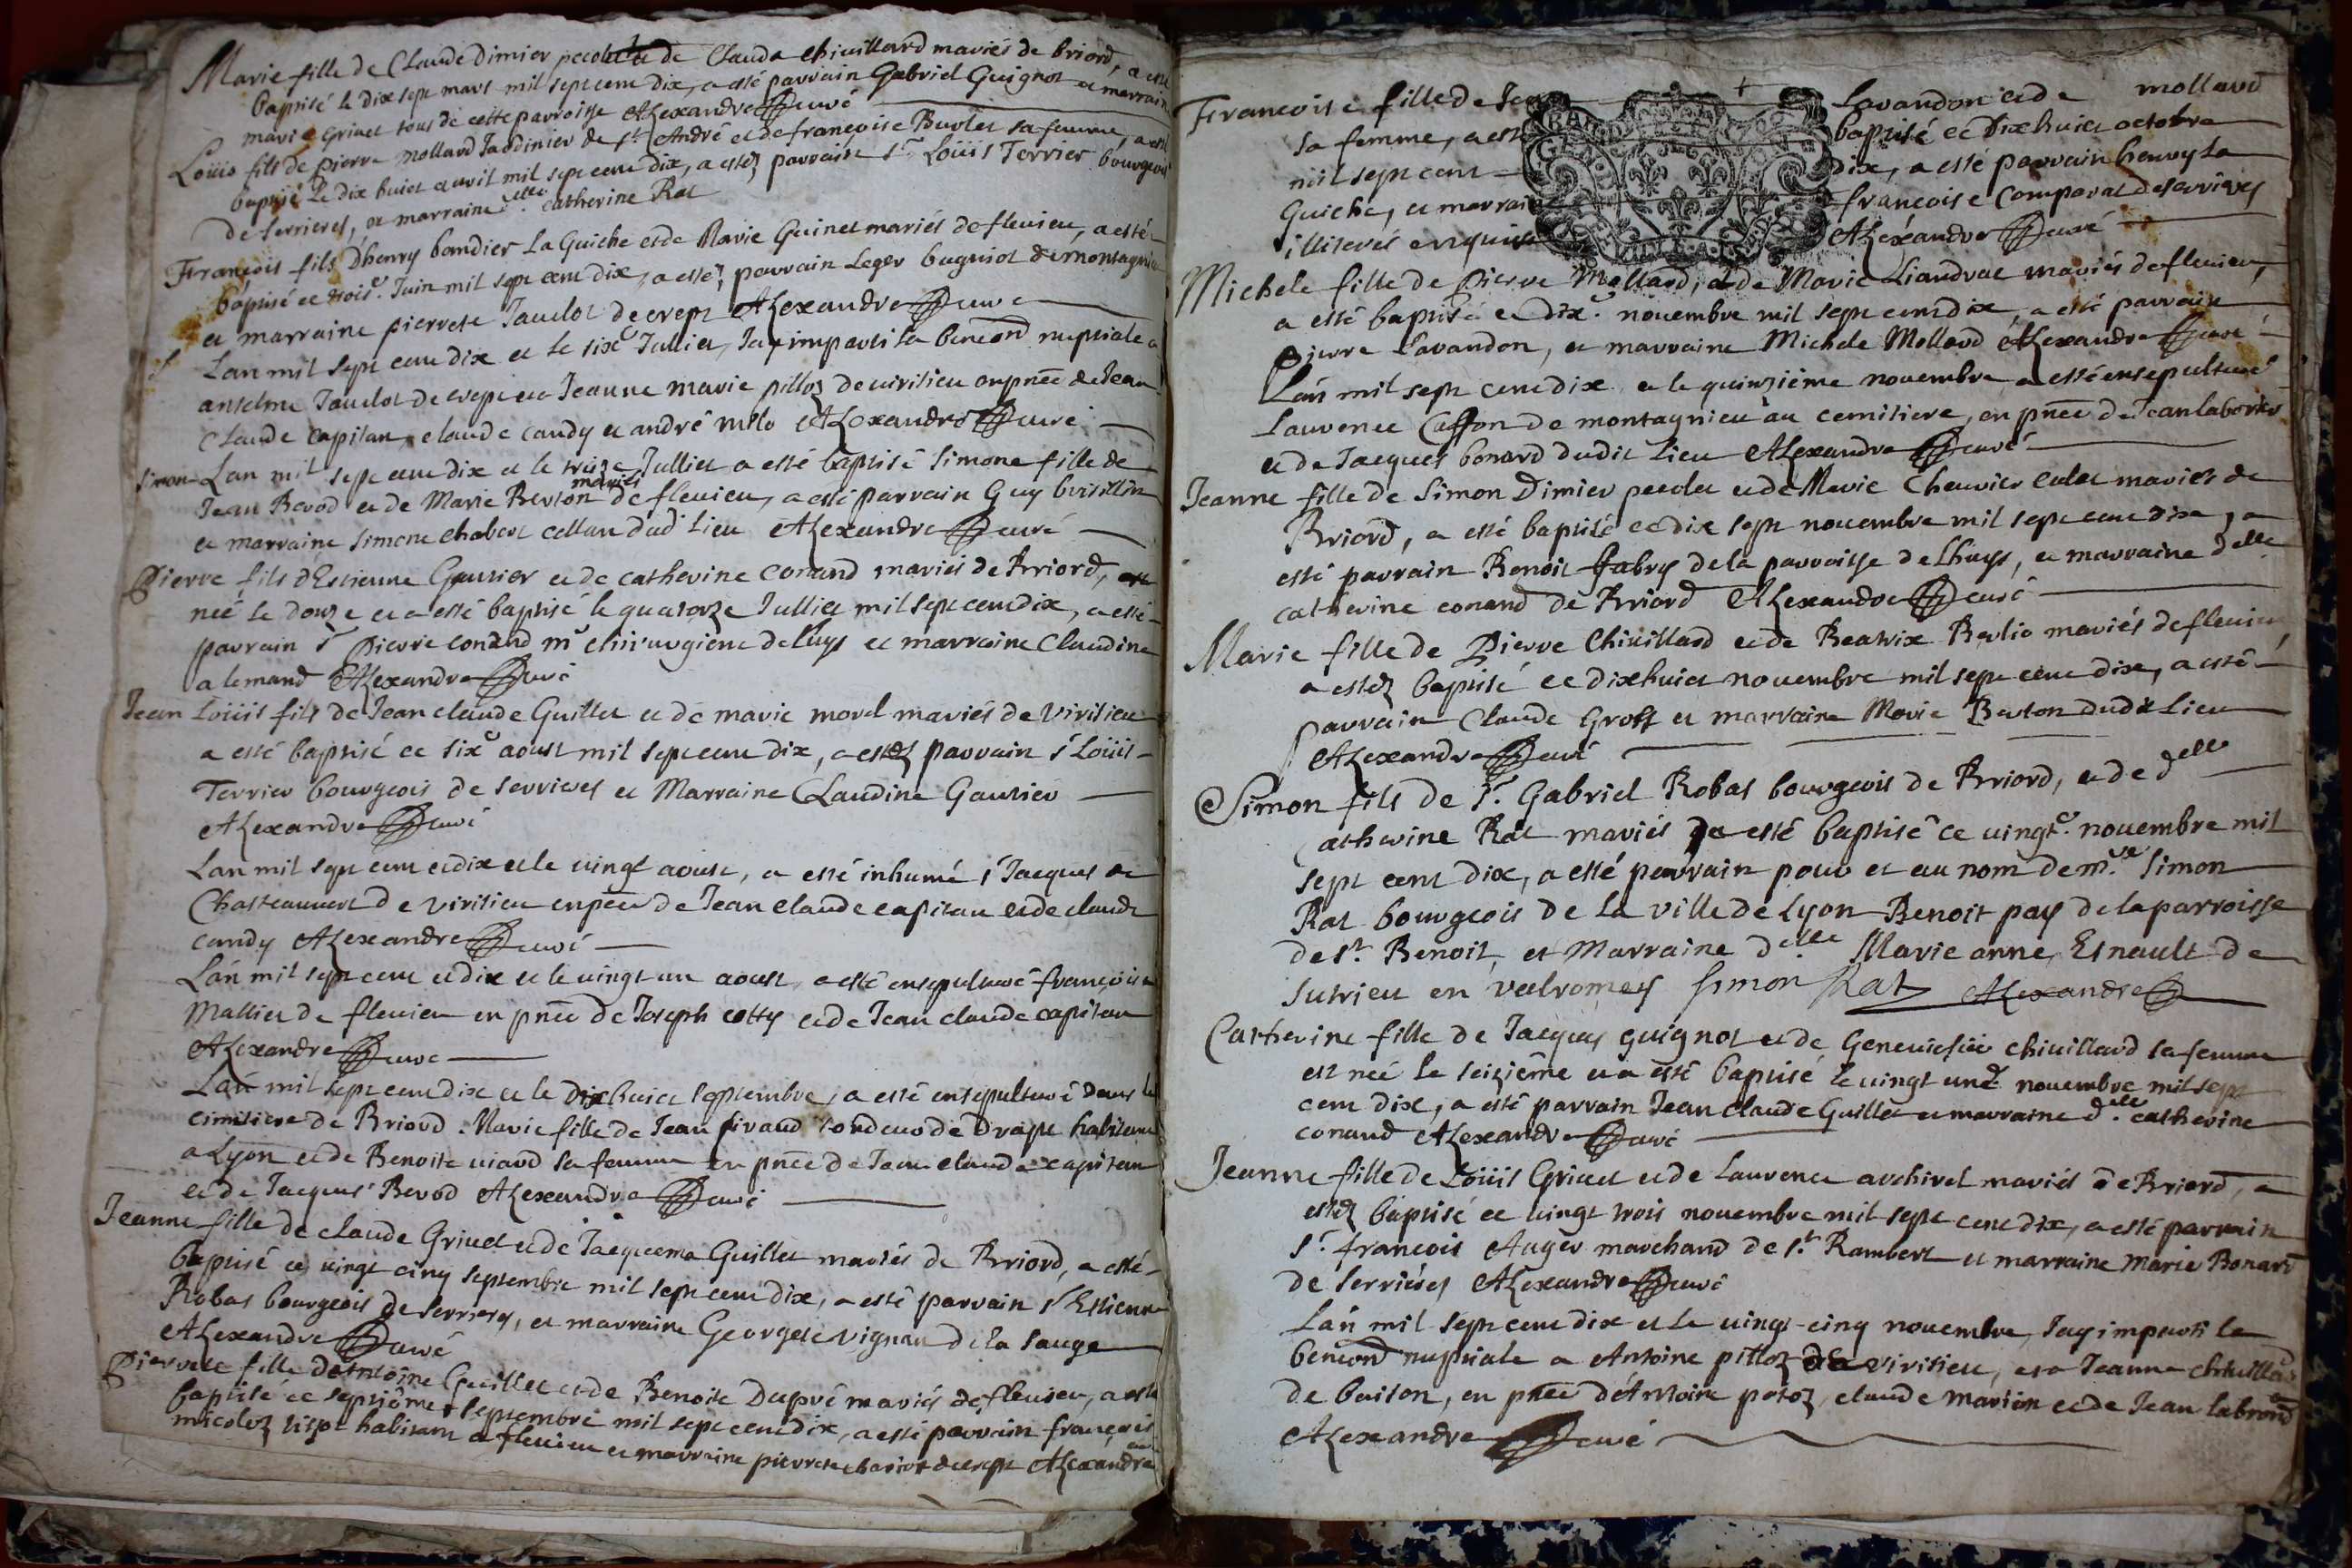 Marie fille de Claude Dimier pecolet et de Clauda Chiuillard mariés de briord, a esté
baptisé le dix sept mars mil sept cent dix, a esté parrain Gabriel Guignot et marraine
marie Griuet tous de cette parroisse Alexandre curé
Loüis fils de pierre mollard Jardinier de st. André et de françoise Burlet sa femme, a esté
baptisé le dix huict auril mil sept cent dix, a estez parrain sr. Loüis Terrier bourgeois
de serrieres, et marraine delle. catherine Rat
François fils Dhenry bandier La Guiche et de Marie Guinet mariés de fleuieu, a esté
baptisé ce troise. Juin mil sept cent dix, a estez parrain Leger bugniot de montagnieu
et marraine pierrete Jauclot de crept Alexandre curé
Lan mil sept cent dix et le sixe Julliet, Jay imparti la beneon. nuptiale a
anselme Jauclot de crept et a Jeanne marie pilloz de uirisieu en pnce de Jean
Claude capitan, claude candy et andré milo Alexandre curé
Simone Lan mil sept cent dix et le treize Julliet a esté baptisé Simone fille de
Jean Berod et de Marie Berton mariés de fleuieu, a esté parrain Guy brisillon
et marraine simone chabert cellan dud. Lieu Alexandre curé
Pierre fils d'Estienne Gautier et de catherine conand mariés de Briord, est
neé le douze et a esté baptisé le quatorze Jullict mil sept cent dix, a esté
parrain sr Pierre conand mr chirurgiene de Luys et marraine Claudine
alemand Alexandre curé
Jean Loüis fils de Jean claude Guillet et de marie morel mariés de Virisieu
a esté baptisé ce sixe aoust mil sept cent dix, a estez parrain sr Loüis
Terrier bourgeois de serrieres et Marraine Claudine Gautier
Alexandre curé
Lan mil sept cent et dix et le uingt aoust, a esté inhumé sr Jacques de
Chasteauuert de virisieu en pnce de Jean claude capitan et de claude
candy Alexandre curé
Lan mil sept cent et dix et le uingt un aoust, a esté ensepulturé françoise
Mallict de fleuieu en pnce de Joseph cotty et de Jean claude capitan
Alexandre curé
Lan mil sept cent dix et le dix huict septembre, a esté ensepulturé dans le
cimitiere de Briord Marie fille de Jean firaud tondeur de draps habitant
a Lyon et de Benoite uiard sa femme en pnce de Jean claude capitan
et de Jacques Berod Alexandre curé
Jeanne fille de claude Griuet et de Jacquema Guillet mariés de Briord, a esté
baptisé ce uingt cinq septembre mil sept cent dix, a esté parrain sr Estienne
Robas bourgeois de serrieres, et marraine Georgete vignau de la sauge
Alexandre curé
Pierrete fille detntoine Guillet et de Benoite Dupré mariés de fleuieu, a esté
baptisé ce septiéme septembre mil sept cent dix, a esté parrain françois
micoloz habitant a fleuieu et marraine pierrete chariot de crept Alexandre curé
Françoise fille de Jean Lauandon et de mollard
sa femme, a esté baptisé ce Dixhuict octobre
mil sept cent dix, a esté parrain henry La
Guiche, et marraine françoise Comparat des arrieres
illiterés enquis Alexandre curé
Michele fille de Pierre Mollard, et de Marie Liandrat mariés de fleuieu,
a esté baptisé ce dixe. nouembre mil sept cent dix, a esté parrain
Pierre Lauandon, et marraine Michele Mollard Alexandre curé
Lan mil sept cent dix et le quinziéme nouembre a esté ensepulturé
Laurence Caffon de montagnieu au cemitiere, en pnce de Jean laborier
et de Jacques bonard dudit Lieu Alexandre curé
Jeanne fille de Simon Dimier pecolet et de Marie Cheurier culat mariés de
Briord, a esté baptisé ce dix sept nouembre mil sept cent dix, a
esté parrain Benoit Fabry de la parroisse de Lhuys, et marraine delle
catherine conand de Briord Alexandre curé
Marie fille de Pierre Chiuillard et de Beatrix Berlio mariés de fleuieu,
a estez baptisé ce dixhuict nouembre mil sept cent dix, a esté
parrain Claude Gross et marraine Marie Berton dudit Lieu
Alexandre curé
Simon fils de Sr. Gabriel Robas bourgeois de Briord, et de delle
Catherine Rat mariés a esté baptisé ce uingte. nouembre mil
sept cent dix, a esté parrain pour et au nom de mr. Simon
Rat bourgeois de la ville de Lyon Benoit pay de la parroisse
de st. Benoit, et Marraine delle. Marie anne Esnault de
Sutrieu en valromey Simon Rat Alexandre
Catherine fille de Jacques guignot et de Geneuiesue chiuillard sa femme
est neé le seiziéme et a esté baptisé le uingt une nouembre mil sept
cent dix, a esté parrain Jean claude Guillet et marraine delle. catherine
conand Alexandre curé
Jeanne fille de Loüis Griuet et de Laurence archirel mariés de Briord, a
estez baptisé ce uingt trois nouembre mil sept cent dix, a esté parrain
sr. françois Auger marchand de st. Rambert et marraine marie Bonard
de serrieres Alexandre curé
Lan mil sept cent dix et le uingt cinq nouembre, Jay imparti la
beneon nuptiale a Antoine pilloz de virisieu, et a Jeanne chiuillard
de buison, en pnce d'Antoine potoz, claude marion et de Jean labrond
Alexandre curé